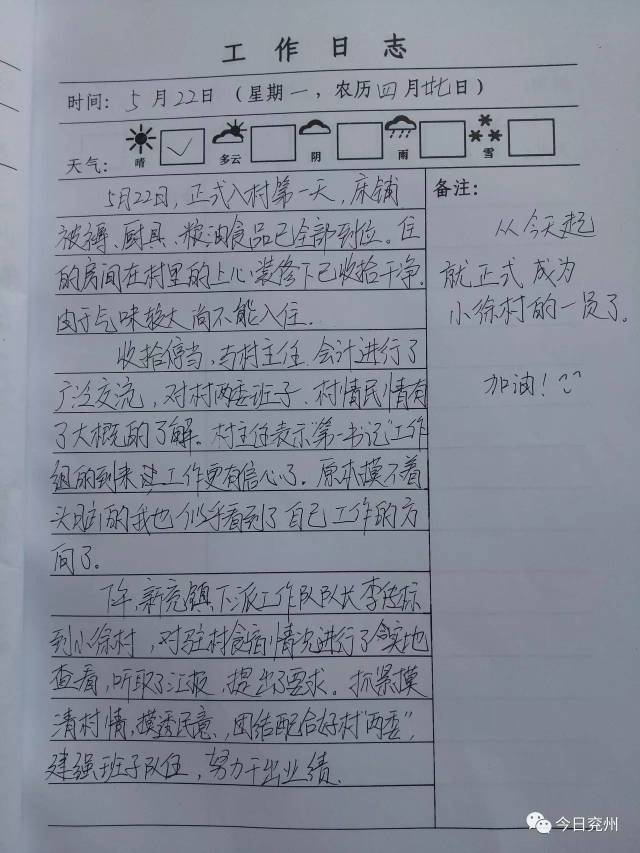 工作日志
时间：5月22日（星期一，农历四月廿七日）
天气： 晴 多云 阴 雨 雪
5月22日，正式入村第一天，床铺
被褥、厨具、粮油食品已全部到位。住
的房间在村里的上心装修下已收拾干净。
由于气味较大尚不能入住．
收拾停当，与村主任、会计进行了
广泛交流，对村两委班子、村情民情有
了大概的了解。村主任表示“第一书记”工作
组的到来 工作更有信心了。原本摸不着
头脑的我也似乎看到了自己工作的方
向了。
下午，新兖镇下派工作队队长李
到小徐村，对驻村食宿情况进行了实地
查看，听取了汇报，提出了要求。抓紧摸
清村情，摸透民意，团结配合好村“两委”，
建强班子队伍，努力干出业绩．
备注：
从今天起
就正式成为
小徐村的一员了。
加油！
今日兖州